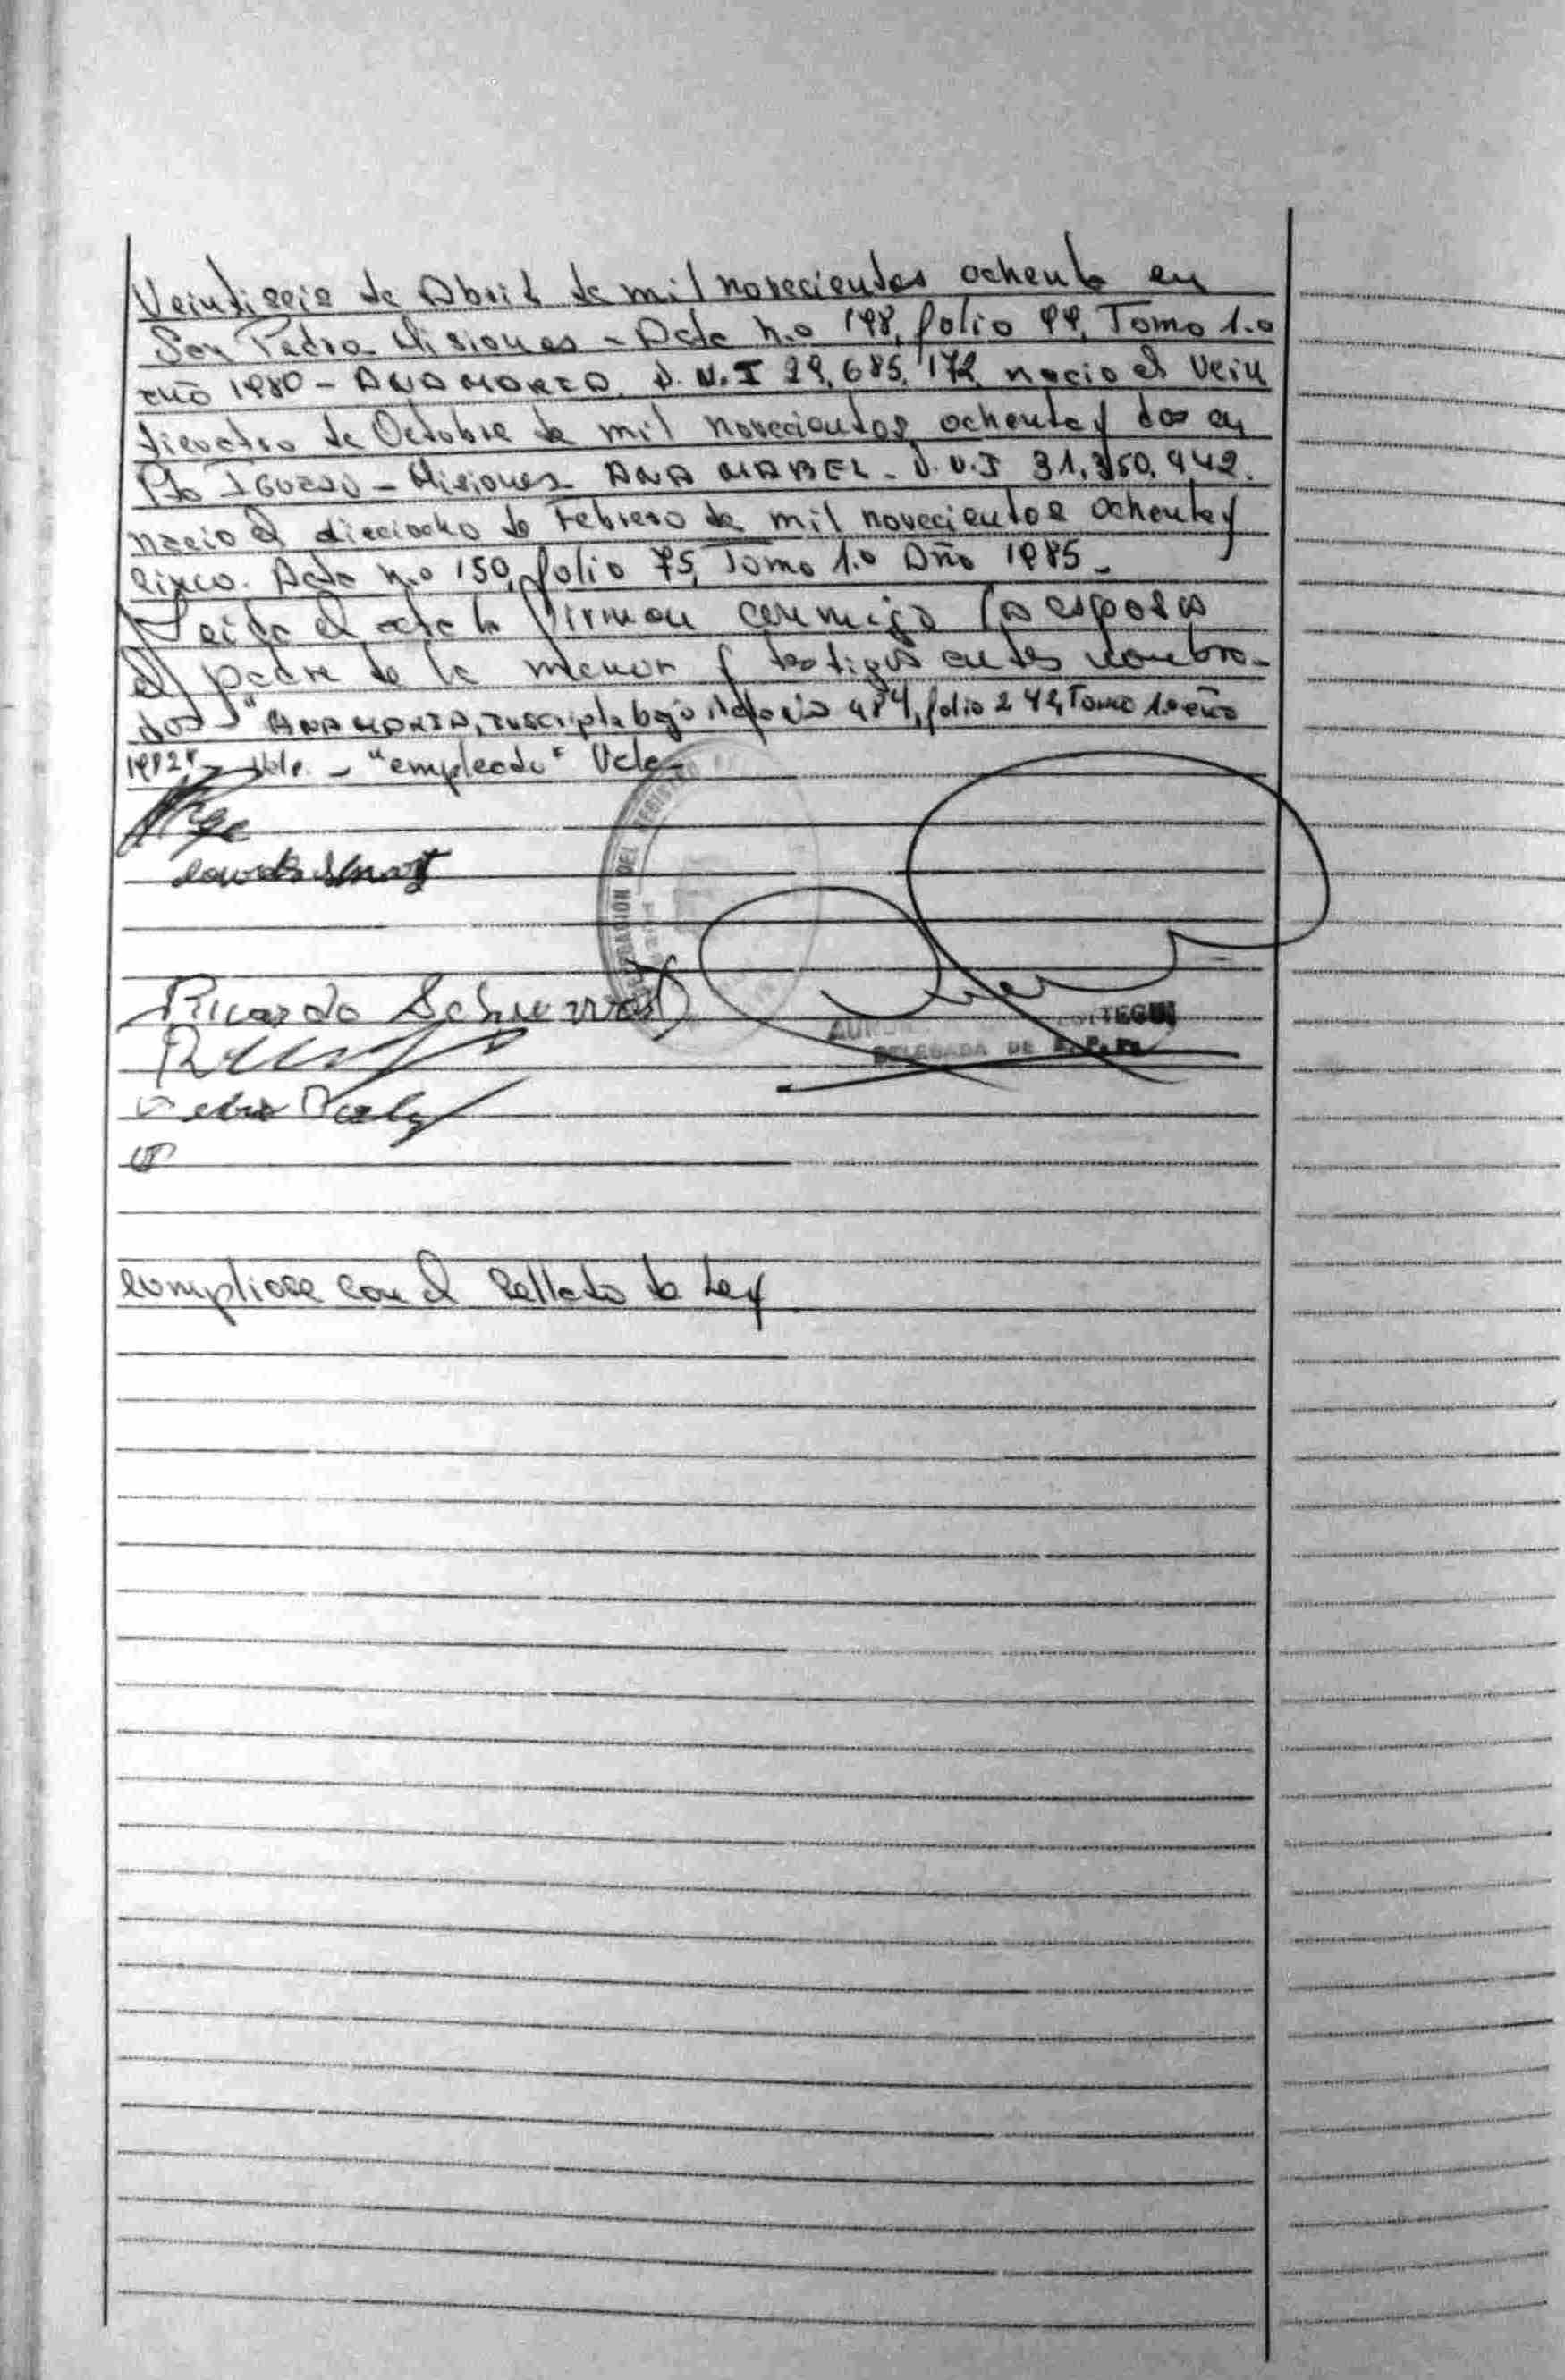 Veintiseis de Abril de mil novecientos ochenta en
San Pedro Misiones - Acta n.o 198, folio 99, Tomo 1.o
año 1980 - ANA MARIA. D.N.I 29.685.172 nacio el Vein
ticuatro de Octubre de mil novecientos ochenta y dos en
Pto IGUAZU - Misiones ANA MABEL - D.N.I 31.350.942.
nacio el dieciocho de Febrero de mil novecientos ochenta y
cinco. Acta n.o 150, folio 75, Tomo 1.o Año 1985 -
Leida el acta la firman conmigo los esposos
el padre de la menor y testigos antes nombra-
dos - "ANA MARIA, inscripta bajo Acta 484, folio 242, Tomo 1.o año
1982" - Vale. - "empleado" Vale -
DEL REGISTRO
Ricardo
DELEGADA DE
cumpliose con el sellado de Ley